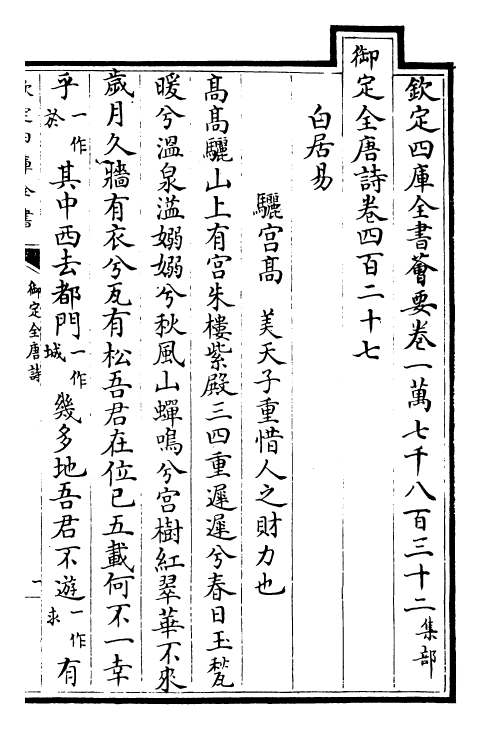 欽定四庫全書薈要卷一萬七千八百三十二集部
御定全唐詩卷四百二十七
白居易
驪宮髙 美天子重惜人之財力也
髙髙驪山上有宮朱樓紫殿三四重遲遲兮春日玉甃
暖兮溫泉溢嫋嫋兮秋風山蟬鳴兮宮樹紅翠華不來
歲月久牆有衣兮瓦有松吾君在位已五載何不一幸
乎一作於其中西去都門一作城幾多地吾君不遊一作求有
欽定四庫全書
御定全唐詩
一